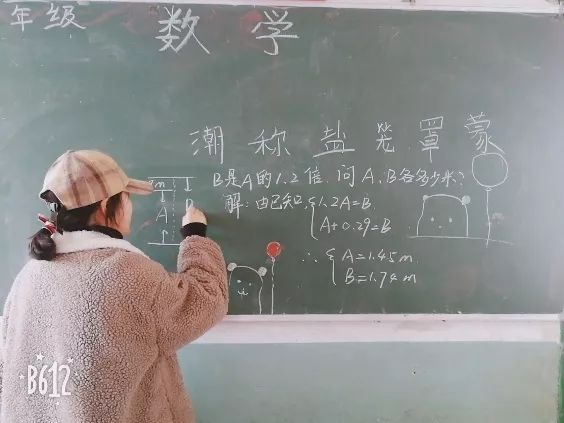 年级 数学
潮称盐筅罩蒙
B是A的1.2倍.问A.B各多少米?
m
A
解:由已知,{1.2A=B.
A+0.29=B
∴{A=1.45m
B=1.74m
B612